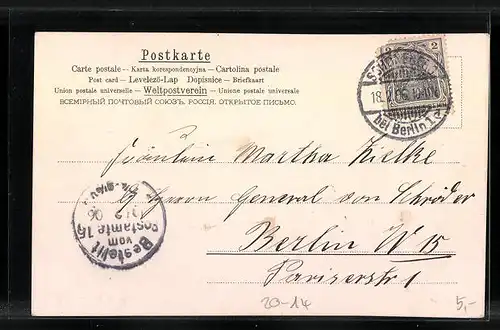 Postkarte
Carte postale — Karta korespondencyjna — Cartolina postale
Post card — Levelező-Lap Dopisnice — Briefkaart
Union postale universelle — Weltpostverein — Unione postale universale
ВСЕМІРНЫЙ ПОЧТОВЫЙ СОЮЗЪ. РОССІЯ. ОТКРЫТОЕ ПИСЬМО.
2 2
18.
bei Berlin 1
Fräulein Martha Zielke
Herrn General von Schröder
Berlin W 15
Pariserstr 1
Bestellt
vom
Postamte 15
06
20-14
5,-